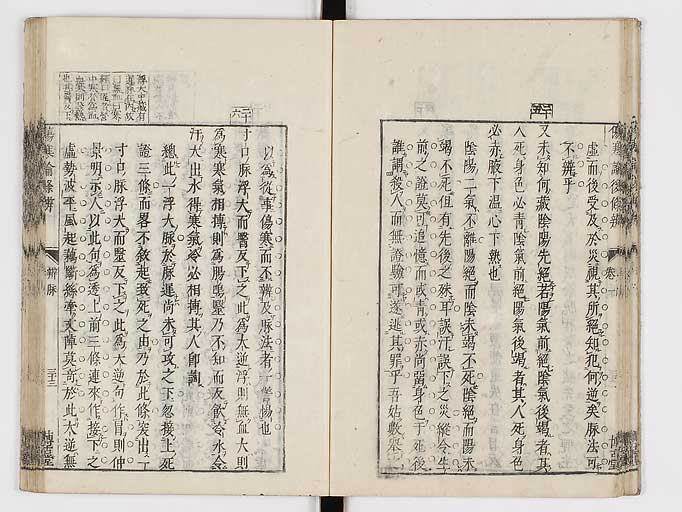 傷寒論後條辨
卷二
二十五
虛而後受及於災視其所絕知犯何逆矣脉法可
不辨乎
又未知何藏陰陽先絕若陽氣前絕陰氣後竭者其
人死身色必青陰氣前絕陽氣後竭者其人死身色
必赤腋下溫心下熱也
陰陽二氣不離陽絕而陰未竭不死陰絕而陽未
竭不死但有先後之殊耳誤汗誤下之災縱令生
前之證莫可追憶而或青或赤尚留身色于死後
誰謂殺人而無證驗可遂逃其罪乎吾姑數舉
二十六
以爲從事傷寒而不辨及脉法者一儆惕也
寸口脉浮大而醫反下之此爲大逆浮則無血大則
爲寒寒氣相搏則爲腸鳴醫乃不知而反飲冷水令
汗大出水得寒氣冷必相搏其人卽䭇
總此一浮大脉於脉遲尚未可攻之下忽接上死
證三條而畧不敘起我死之由乃於此條突出一
寸口脉浮大而醫反下之此爲大逆句作冒則仲
景明示人以此句爲透上前三條連來作接下之
虛勢波平風起藕斷絲牽文陣莫奇於此大逆無
傷寒論條辨
辨脉
二十三